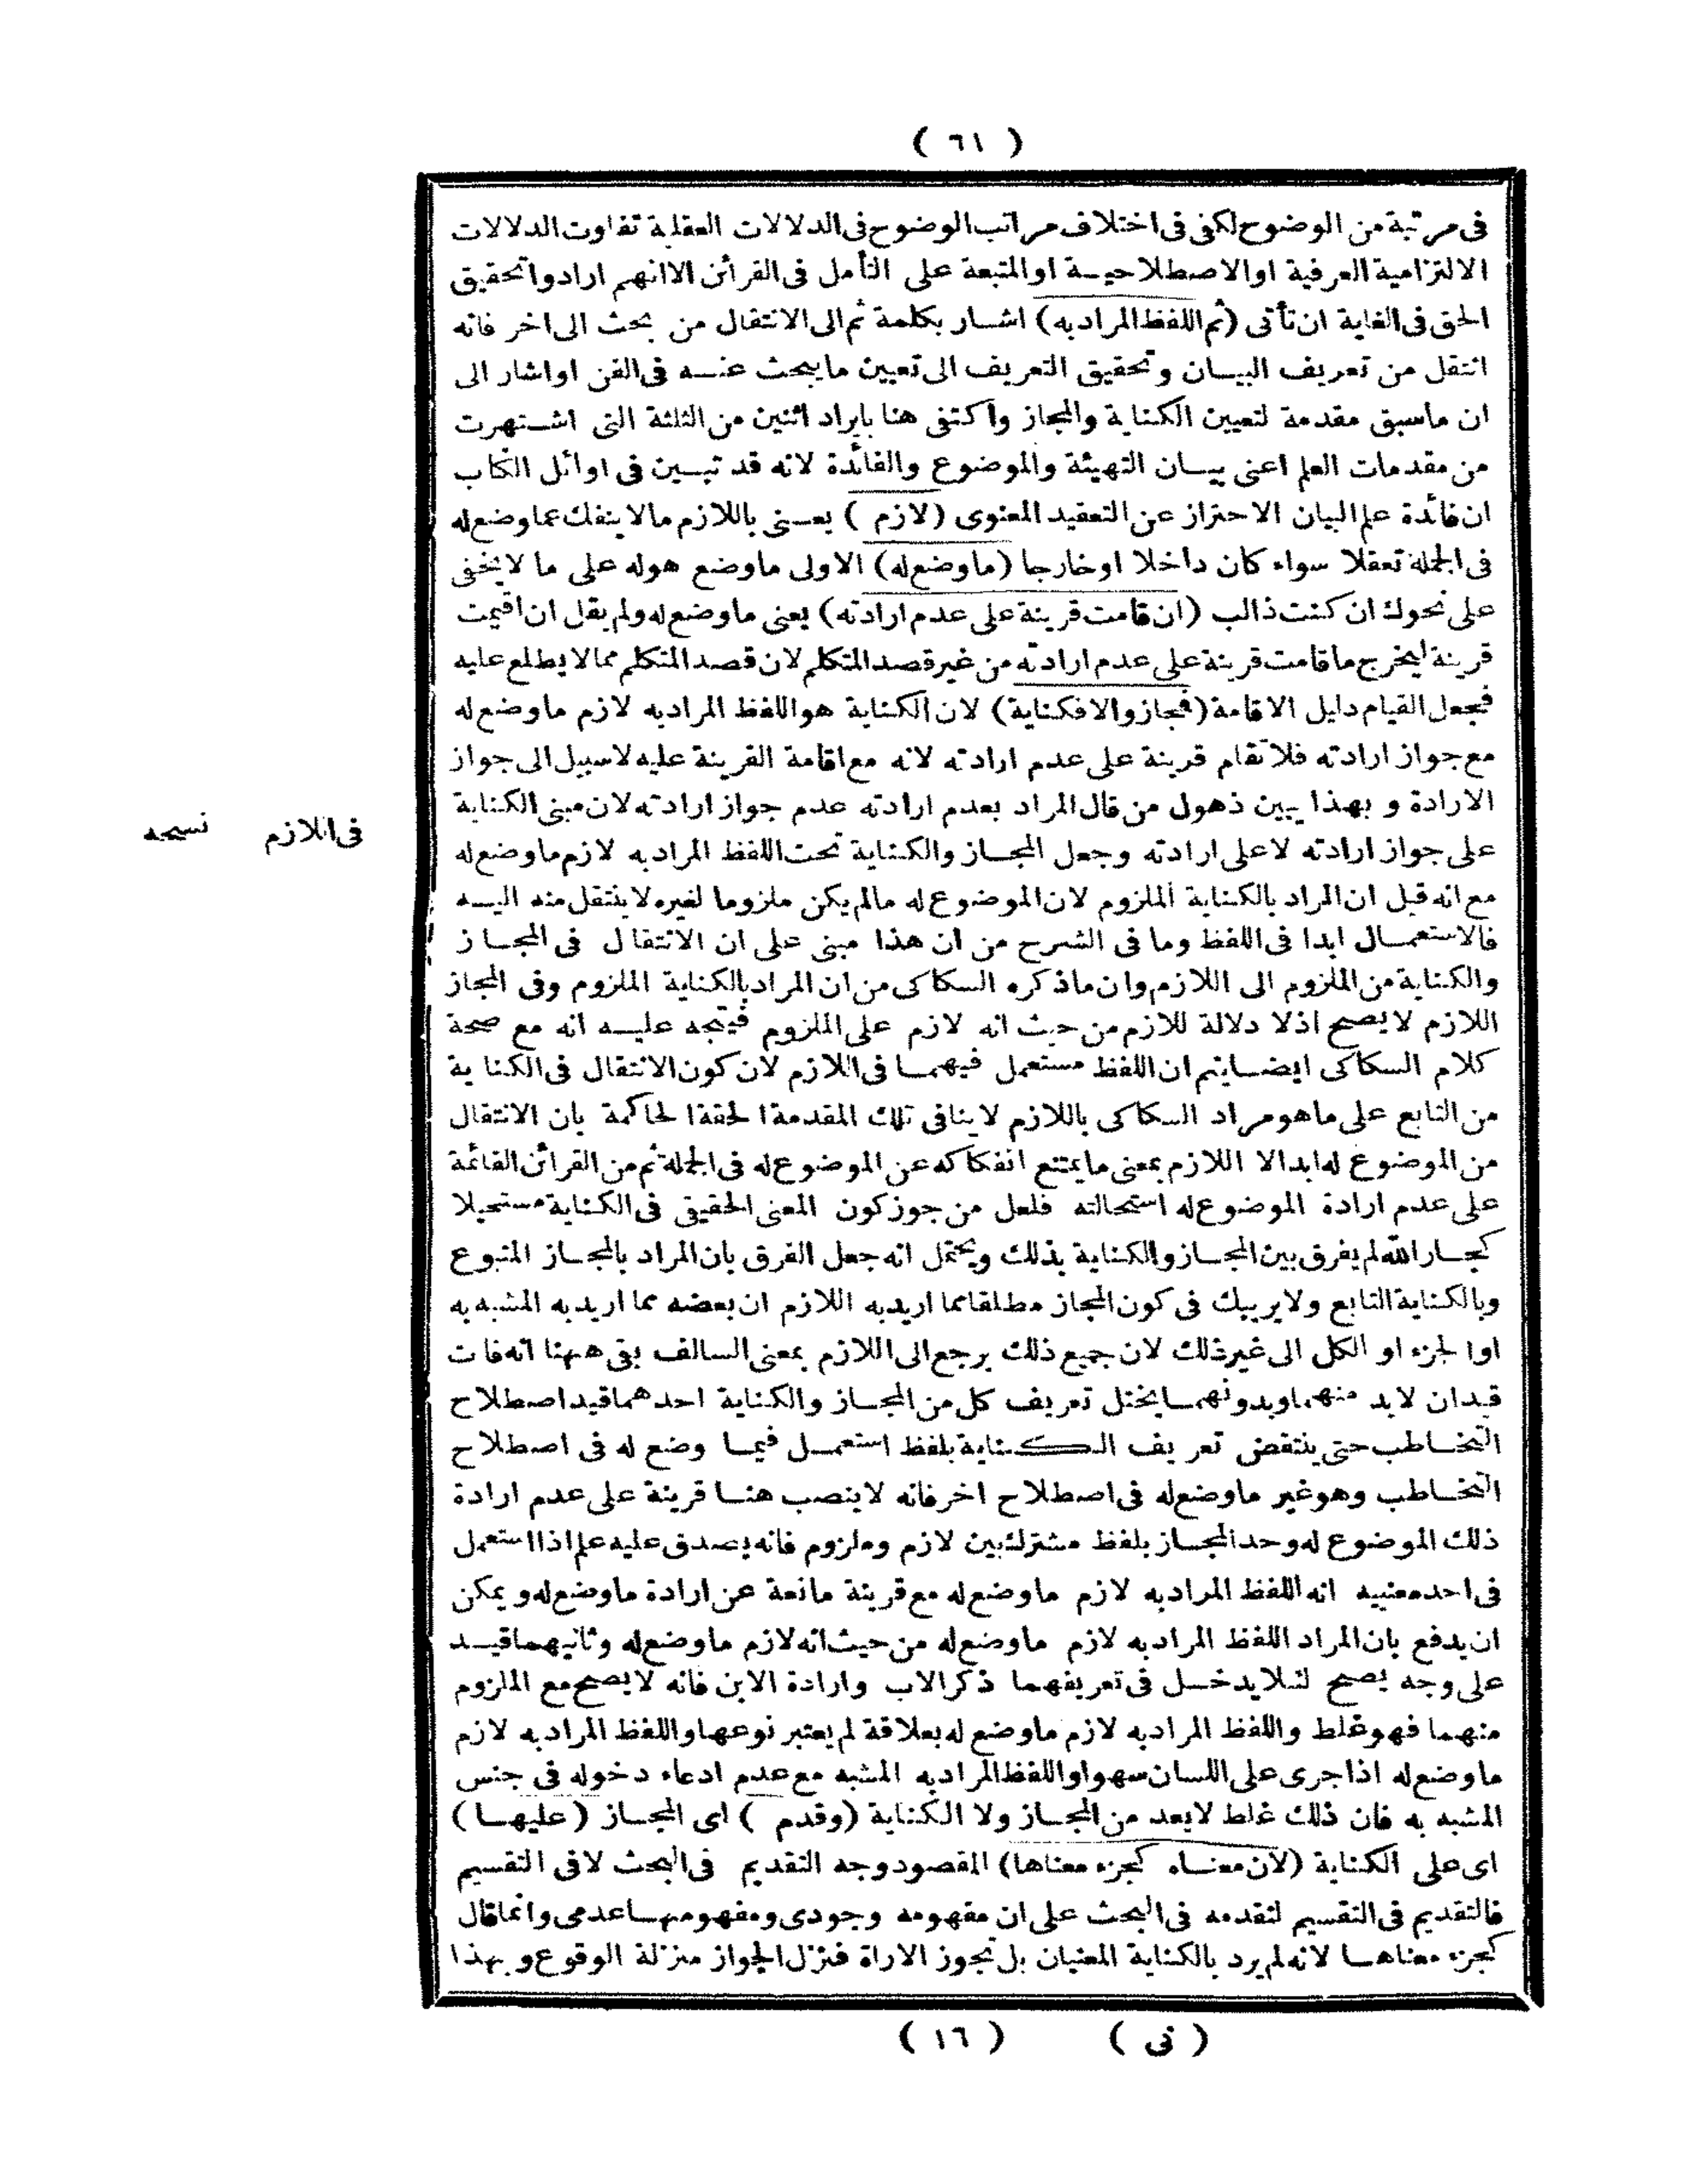 ( ٦١ )
فى مرتبة من الوضوح لكفى فى اختلاف مراتب الوضوح فى الدلالات العقلية تفاوت الدلالات
الالتزامية العرفية اوالاصطلاحيـة اوالمتبعة على التأمل فى القرائن الاانهم ارادوا تحقيق
الحق فى الغاية ان تأتى (ثم اللفظ المرادبه) اشـار بكلمة ثم الى الانتقال من بحث الى اخر فانه
انتقل من تعريف البيـان وتحقيق التعريف الى تعيين مايبحث عنـه فى الفن اواشار الى
ان ماسبق مقدمة لتعيين الكناية والمجاز واكتفى هنا بايراد اثنين من الثلثة التى اشـتهرت
من مقدمات العلم اعنى بيـان التهيئة والموضوع والفائدة لانه قد تبـين فى اوائل الكتاب
ان فائدة علم البيان الاحتراز عن التعقيد المعنوى (لازم ) يعـنى باللازم مالاينفك عما وضع له
فى الجملة تعقلا سواء كان داخلا اوخارجا (ماوضع له) الاولى ماوضع هوله على ما لايخفى
على نحوك ان كنت ذالب (ان قامت قرينة على عدم ارادته) يعنى ماوضع له ولم يقل ان اقيمت
قرينة ليخرج ماقامت قرينة على عدم ارادته من غيرقصد المتكلم لان قصد المتكلم ممالا يطلع عليه
فيجعل القيام دليل الاقامة (فمجاز والافكناية) لان الكناية هواللفظ المرادبه لازم ماوضع له
مع جواز ارادته فلاتقام قرينة على عدم ارادته لانه مع اقامة القرينة عليه لاسبيل الى جواز
الارادة و بهذا يبين ذهول من قال المراد بعدم ارادته عدم جواز ارادته لان مبنى الكناية
على جواز ارادته لاعلى ارادته وجعل المجـاز والكناية تحت اللفظ المرادبه لازم ماوضع له
مع انه قيل ان المراد بالكناية الملزوم لان الموضوع له مالم يكن ملزوما لغيره لاينتقل منه اليـه
فالاستعمـال ابدا فى اللفظ وما فى الشرح من ان هذا مبنى على ان الانتقال فى المجـاز
والكناية من الملزوم الى اللازم وان ماذكره السكاكى من ان المراد بالكناية الملزوم وفى المجاز
اللازم لايصح اذلا دلالة للازم من حيث انه لازم على الملزوم فيتجه عليـه انه مع صحة
كلام السكاكى ايضـايتم ان اللفظ مستعمل فيهمـا فى اللازم لان كون الانتقال فى الكناية
من التابع على ماهومراد السكاكى باللازم لاينافى تلك المقدمة الحقة الحاكمة بان الانتقال
من الموضوع له ابدالا اللازم بمعنى مايمتنع انفكاكه عن الموضوع له فى الجملة ثم من القرائن القائمة
على عدم ارادة الموضوع له استحالته فلعل من جوز كون المعنى الحقيقى فى الكناية مستحيلا
كجـار الله لم يفرق بين المجـاز والكناية بذلك ويحتمل انه جعل الفرق بان المراد بالمجـاز المتبوع
وبالكناية التابع ولايريبك فى كون المجاز مطلقا مما اريدبه اللازم ان بعضه مما اريدبه المشبه به
اوالجزء او الكل الى غيرذلك لان جميع ذلك يرجع الى اللازم بمعنى السالف بقى ههنا انه فات
قيدان لابد منهما وبدونهمـا يختل تعريف كل من المجـاز والكناية احدهما قيد اصطلاح
التخـاطب حتى ينتقض تعريف الكـناية بلفظ استعمـل فيمـا وضع له فى اصطلاح
التخـاطب وهوغير ماوضع له فى اصطلاح اخر فانه لاينصب هنـا قرينة على عدم ارادة
ذلك الموضوع له وحد المجـاز بلفظ مشترك بين لازم وملزوم فانه يصدق عليه علم اذااستعمل
فى احد معنييه انه اللفظ المرادبه لازم ماوضع له مع قرينة مانعة عن ارادة ماوضع له ويمكن
ان يدفع بان المراد اللفظ المرادبه لازم ماوضع له من حيث انه لازم ماوضع له وثانيهما قيـد
على وجه يصح لئلايدخـل فى تعريفهما ذكرالاب وارادة الابن فانه لايصح مع الملزوم
منهما فهوغلط واللفظ المرادبه لازم ماوضع له بعلاقة لم يعتبر نوعها واللفظ المرادبه لازم
ماوضع له اذاجرى على اللسان سهوا واللفظ المرادبه المشبه مع عدم ادعاء دخوله فى جنس
المشبه به فان ذلك غلط لايعد من المجـاز ولا الكناية (وقدم ) اى المجـاز (عليهـا)
اى على الكناية (لان معنـاه كجزء معناها) المقصود وجه التقديم فى البحث لافى التقسيم
فالتقديم فى التقسيم لتقدمه فى البحث على ان مفهومه وجودى ومفهومهـا عدمى وانماقال
كجزء معناهـا لانه لم يرد بالكناية المعنيان بل تجوز الاراة فنزل الجواز منزلة الوقوع وبهذا
فى اللازم نسخه
( نى ) ( ١٦ )